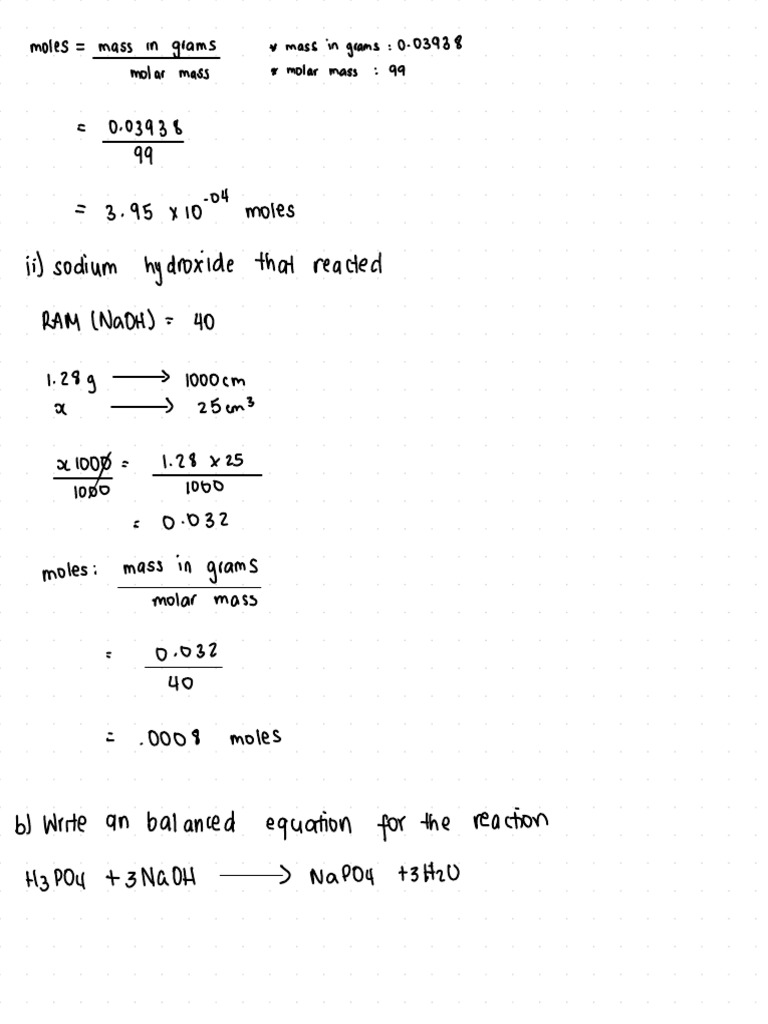 moles = mass in grams / molar mass * mass in grams : 0.03938
* molar mass : 99
= 0.03938 / 99
= 3.95 x 10^-04 moles
ii) sodium hydroxide that reacted
RAM (NaOH) = 40
1.28g → 1000cm
x → 25cm³
x1000 / 1000 = 1.28 x 25 / 1000
= 0.032
moles: mass in grams / molar mass
= 0.032 / 40
= .0008 moles
b) Write an balanced equation for the reaction
H3PO4 + 3NaOH → NaPO4 + 3H2O